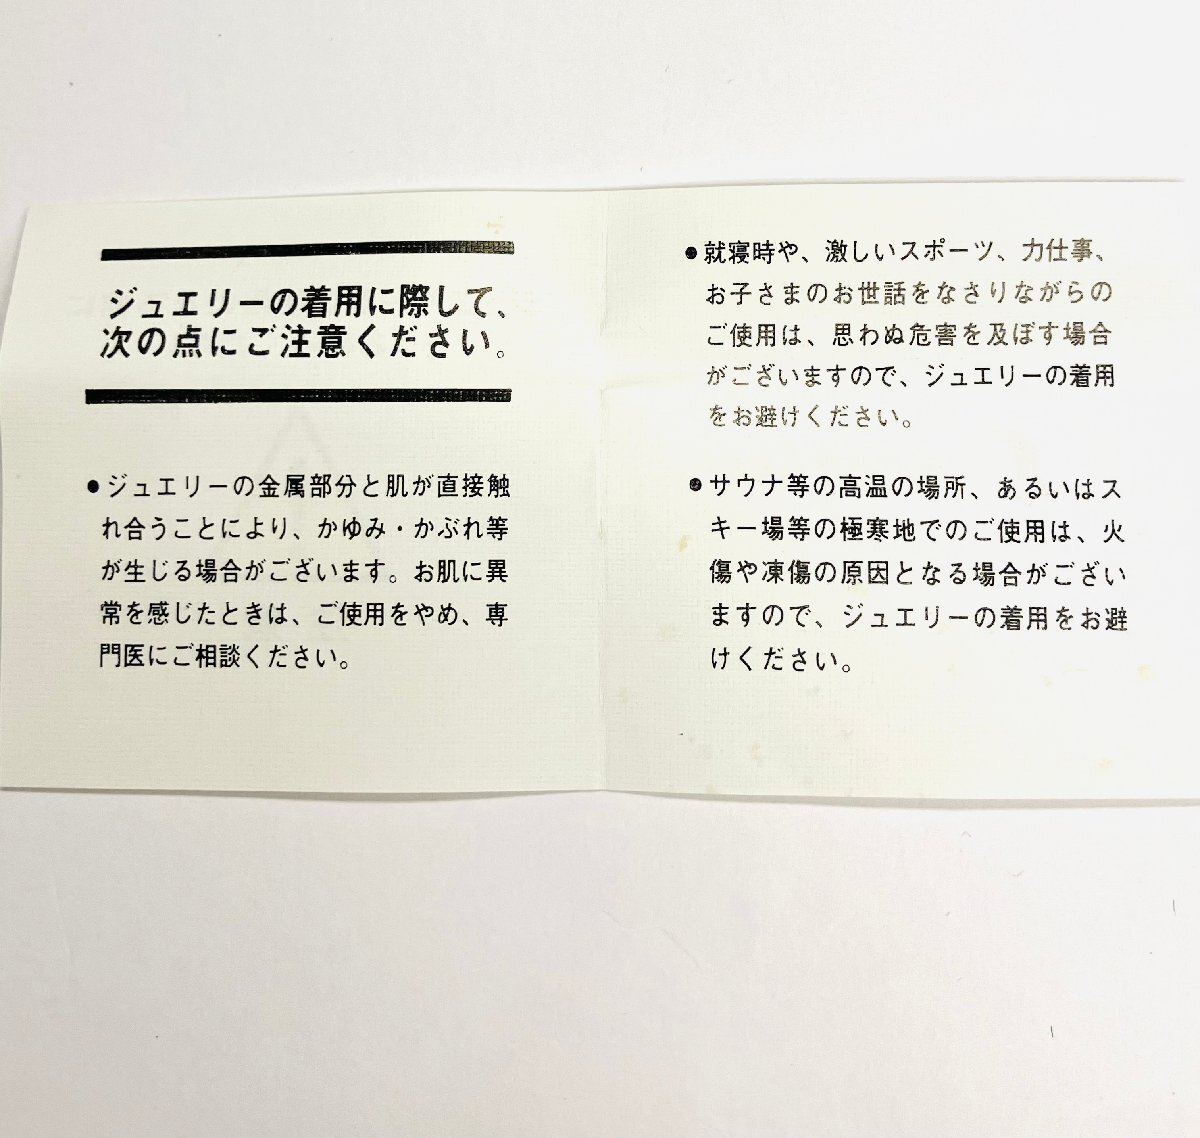 ジュエリーの着用に際して、
次の点にご注意ください。
●ジュエリーの金属部分と肌が直接触
れ合うことにより、かゆみ・かぶれ等
が生じる場合がございます。お肌に異
常を感じたときは、ご使用をやめ、専
門医にご相談ください。
●就寝時や、激しいスポーツ、力仕事、
お子さまのお世話をなさりながらの
ご使用は、思わぬ危害を及ぼす場合
がございますので、ジュエリーの着用
をお避けください。
●サウナ等の高温の場所、あるいはス
キー場等の極寒地でのご使用は、火
傷や凍傷の原因となる場合がござい
ますので、ジュエリーの着用をお避
けください。